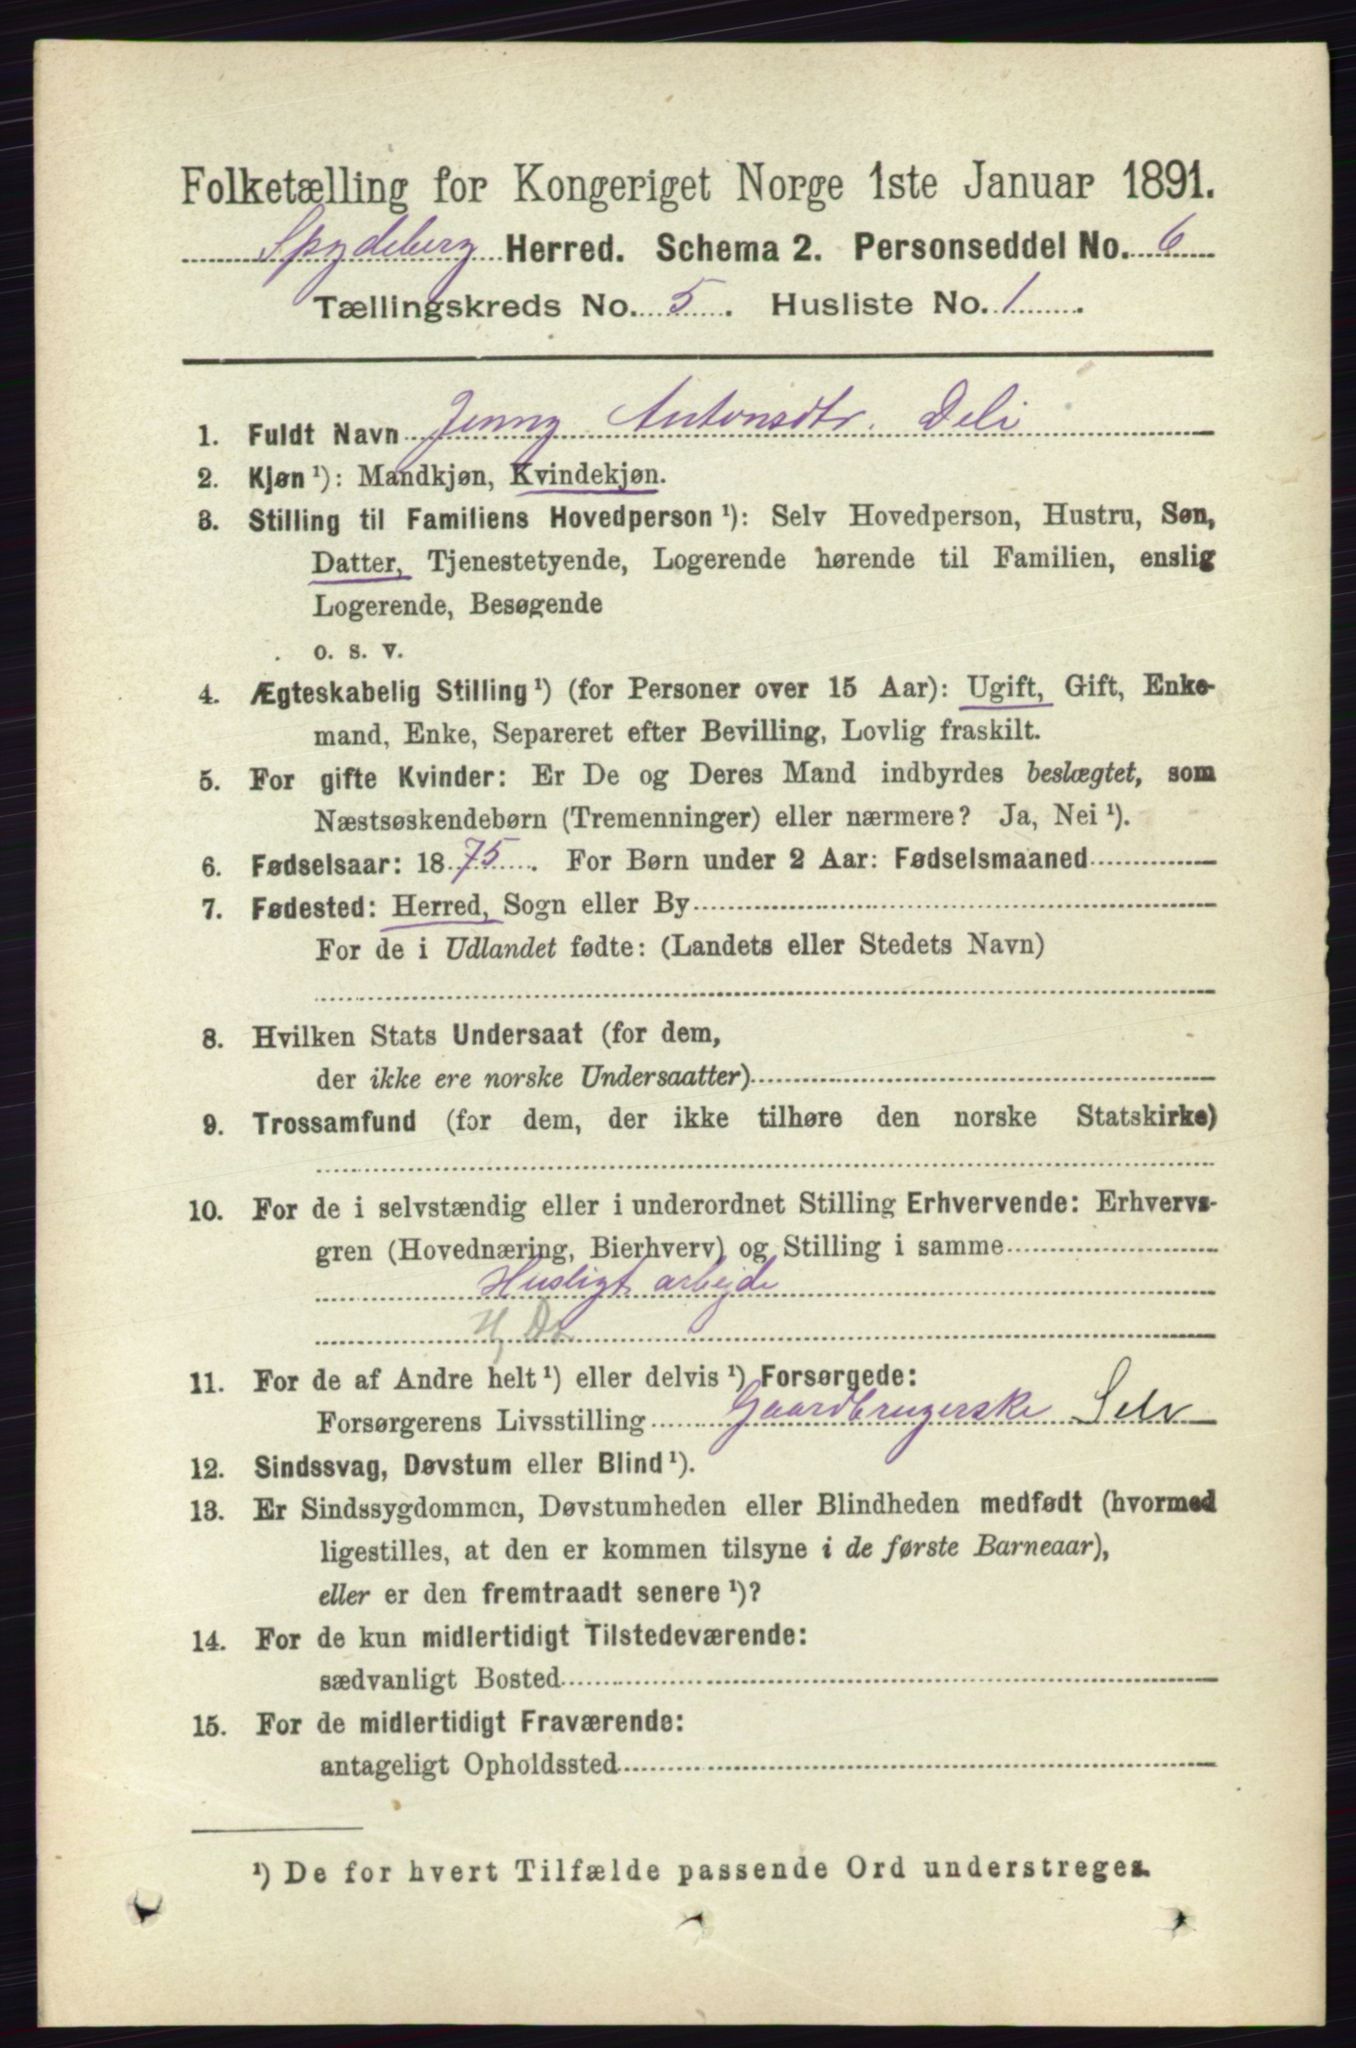 Folketælling for Kongeriget Norge 1ste Januar 1891.
Spydeberg Herred. Schema 2. Personseddel No. 6
Tællingskreds No. 5. Husliste No. 1.
1. Fuldt Navn Jenny Antonsdtr. Deli
2. Kjøn ¹): Mandkjøn, Kvindekjøn.
3. Stilling til Familiens Hovedperson ¹): Selv Hovedperson, Hustru, Søn,
Datter, Tjenestetyende, Logerende hørende til Familien, enslig
Logerende, Besøgende
o. s. v.
4. Ægteskabelig Stilling ¹) (for Personer over 15 Aar): Ugift, Gift, Enke-
mand, Enke, Separeret efter Bevilling, Lovlig fraskilt.
5. For gifte Kvinder: Er De og Deres Mand indbyrdes beslægtet, som
Næstsøskendebørn (Tremenninger) eller nærmere? Ja, Nei ¹).
6. Fødselsaar: 1875. For Børn under 2 Aar: Fødselsmaaned
7. Fødested: Herred, Sogn eller By
For de i Udlandet fødte: (Landets eller Stedets Navn)
8. Hvilken Stats Undersaat (for dem,
der ikke ere norske Undersaatter)
9. Trossamfund (for dem, der ikke tilhøre den norske Statskirke)
10. For de i selvstændig eller i underordnet Stilling Erhvervende: Erhvervs-
gren (Hovednæring, Bierhverv) og Stilling i samme
Husligt arbejde
11. For de af Andre helt ¹) eller delvis ¹) Forsørgede:
Forsørgerens Livsstilling Gaardbrugerske Selv
12. Sindssvag, Døvstum eller Blind ¹).
13. Er Sindssygdommen, Døvstumheden eller Blindheden medfødt (hvormed
ligestilles, at den er kommen tilsyne i de første Barneaar),
eller er den fremtraadt senere ¹)?
14. For de kun midlertidigt Tilstedeværende:
sædvanligt Bosted
15. For de midlertidigt Fraværende:
antageligt Opholdssted
¹) De for hvert Tilfælde passende Ord understreges.